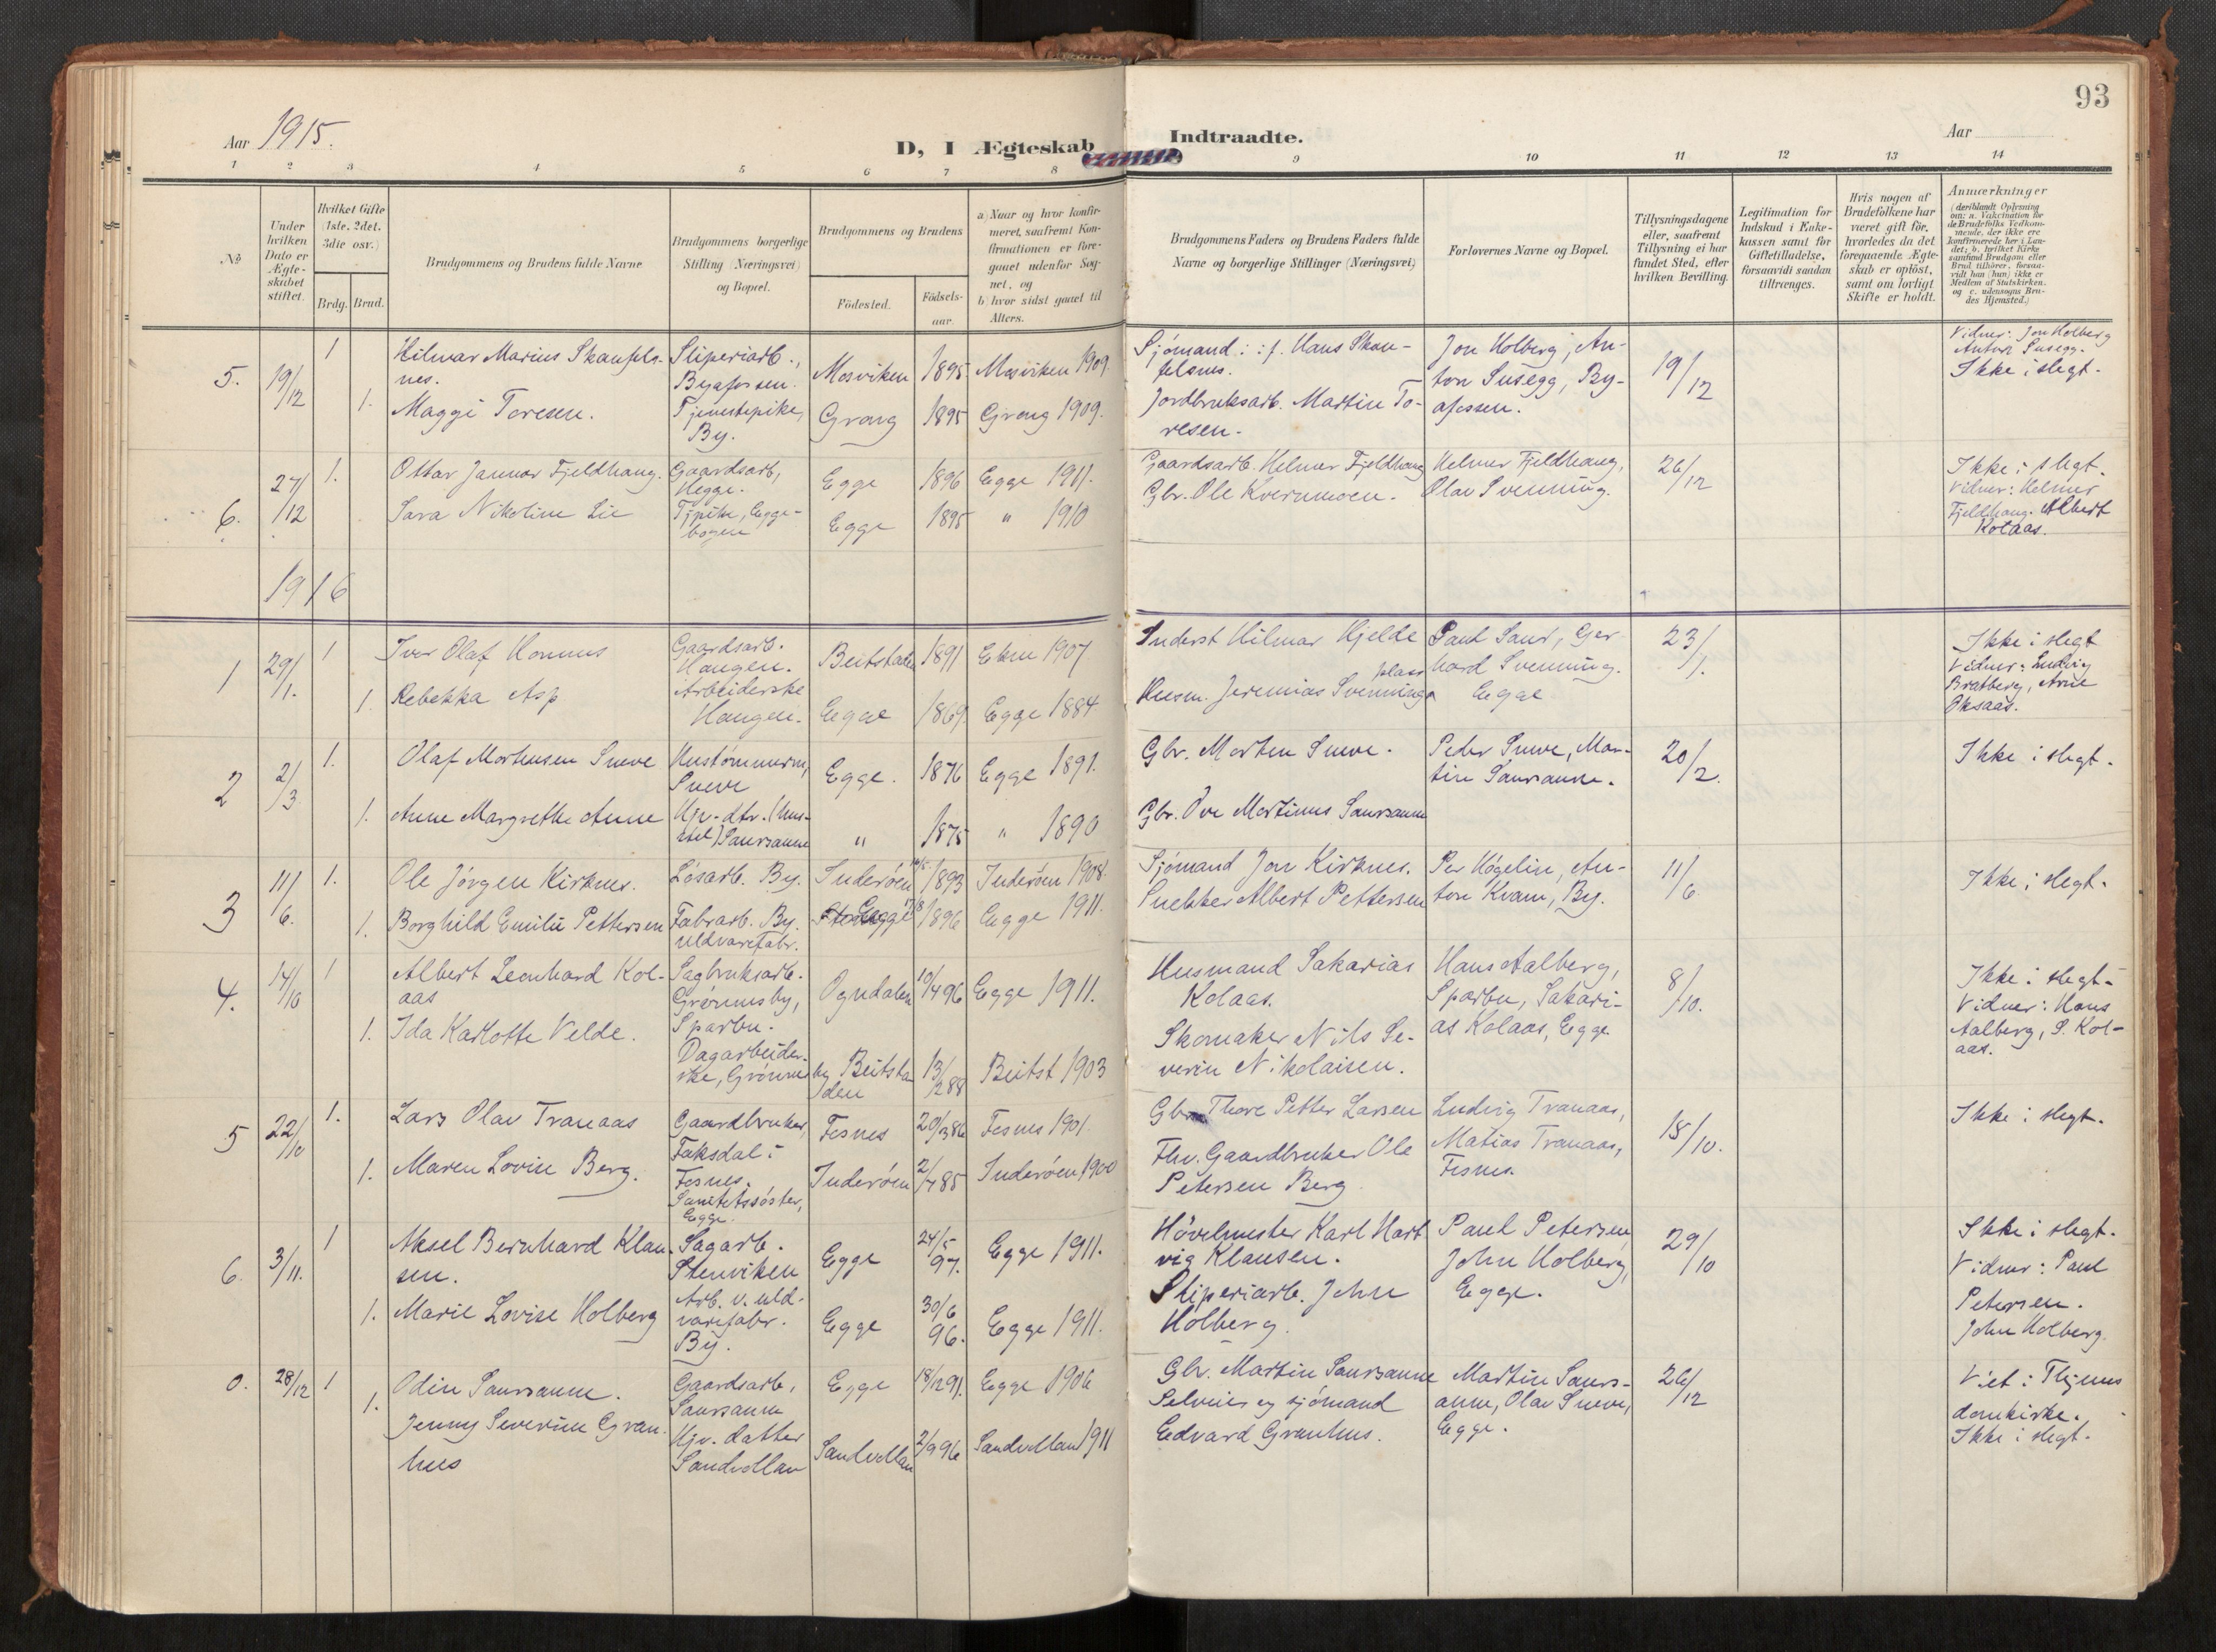 93
Aar 1915.
Aar
D, I Ægteskab Indtraadte.
1 2 3 4 5 6 7 8 9 10 11 12 13 14
No
Under hvilken Dato er Ægteskabet stiftet.
Hvilket Gifte (1ste, 2det, 3die osv.)
Brdg. Brud.
Brudgommens og Brudens fulde Navne
Brudgommens borgerlige Stilling (Næringsvei) og Bopæl.
Brudgommens og Brudens
Födested.
Födselsaar.
a) Naar og hvor konfirmeret, saafremt Konfirmationen er foregaaet udenfor Sognet, og
b) hvor sidst gaaet til Alters.
Brudgommens Faders og Brudens Faders fulde Navne og borgerlige Stillinger (Næringsvei)
Forlovernes Navne og Bopæl.
Tillysningsdagene eller, saafremt Tillysning ei har fundet Sted, efter hvilken Bevilling.
Legitimation for Indskud i Enkekassen samt for Giftetilladelse, forsaavidt saadan tiltrænges.
Hvis nogen af Brudefolkene har været gift før, hvorledes da det foregaaende Ægteskab er opløst, samt om lovligt Skifte er holdt.
Anmærkninger
(deriblandt Oplysning om: a. Vakcination for de Brudefolks Vedkommende, der ikke ere konfirmerede her i Landet; b. hvilket Kirkesamfund Brudgom eller Brud tilhører, forsaavidt han (hun) ikke er Medlem af Statskirken, og c. udensogns Brudes Hjemsted.)
5. 19/12 1
Hilmar Marius Skaufelsnes.
Sliperiarb., Byafossen.
Mosviken 1895 Mosviken 1909
Sjømand: f. Hans Skaufelsnes.
Jon Holberg, Anton Susegg, Byafossen.
19/12
Vidner: Jon Holberg
Anton Susegg.
Ikke i slegt.
1. Maggi Toresen.
Tjenestepike, By.
Grong 1895 Grong 1909.
Jordbruksarb. Martin Toresen.
6. 27/12 1.
Ottar Januar Fjeldhaug.
Gaardsarb, Hegge.
Egge 1896 Egge 1911.
Gaardsarb. Helmer Fjeldhaug
Helmer Fjeldhaug,
Olav Svenning.
26/12
Ikke i slegt.
Vidner: Helmer
Fjeldhaug. Albert
Kolaas.
Sara Nikoline Lie
Tjpike, Eggebogen
Egge 1895 " 1910
Gbr. Ole Kvernmoen.
1916
1 29/1. 1
Iver Olaf Homnes
Gaardsarb. Haugen.
Beitstaden 1891 Ekne 1907
Inderst Hilmar Hjelde
Paul Saur, Gerhard Svenning. Egge
23/1.
Ikke i slegt
Vidner: Ludvig
Bratberg, Arne
Oksaas.
1. Rebekka Asp
Arbeiderske Haugen.
Egge 1869 Egge 1884
Husm. Jeremias Svenningplass
2 2/3 1.
Olaf Mortensen Sneve
Hustømmerm, Sneve
Egge. 1876 Egge 1891.
Gbr. Morten Sneve.
Peder Sneve, Martin Saursaune.
20/2.
Ikke i slegt.
1. Anne Margrethe Aune
Hjv. dtr. (husstel) Saursaune
" 1875 " 1890
Gbr. Ove Martinus Saursaune
3 11/6. 1.
Ole Jørgen Kirknes.
Løsarb. By.
Inderøen 1893 Inderøen 1908.
Sjømand Jon Kirknes.
Per Høgelin, Anton Kvam, By.
11/6
Ikke i slegt.
1. Borghild Emilie Pettersen
Fabrarb. By. uldvarefabr.
Egge 1896 Egge 1911.
Snekker Albert Pettersen
4. 14/10 1
Albert Leonhard Kolaas
Sagbruksarb. Grønnesby, Sparbu.
Ogndalen 10/4 96 Egge 1911.
Husmand Sakarias Kolaas.
Hans Aalberg, Sparbu, Sakarias Kolaas, Egge
8/10.
Ikke i slegt.
Vidner: Hans
Aalberg, S. Kolaas.
1. Ida Karlotte Velde.
Dagarbeiderske, Grønnesby
Beitstaden 13/2 88 Beitst 1903
Skomaker Nils Severin Nikolaisen.
5 22/10 1.
Lars Olav Tranaas
Gaardbruker, Faksdal i Fosnes.
Fosnes 20/3 86 Fosnes 1901.
Gbr Thore Petter Larsen
Ludvig Tranaas, Matias Tranaas, Fosnes
15/10.
Ikke i slegt.
1. Maren Lovise Berg.
Sanitetssøster, Egge.
Inderøen 2/7 85 Inderøen 1900
Fhv. Gaardbruker Ole Petersen Berg
6. 3/11. 1
Aksel Bernhard Klausen.
Sagarb. Stenviken
Egge 24/5 97. Egge 1911.
Høvelmester Karl Hartvig Klausen.
Paul Petersen, John Holberg, Egge.
29/10
Ikke i slegt.
Vidner: Paul
Petersen.
John Holberg.
1. Marie Lovise Holberg
Arb. v. uldvarefabr. By.
Egge 30/6 96. Egge 1911.
Sliperiarb. John Holberg.
0. 28/12 1
Odin Saursaune.
Gaardsarb, Saursaune
Egge 18/12 91. Egge 1906
Gbr. Martin Saursaune
Martin Saursaune, Olav Sneve, Egge.
26/12
Viet i Thjems
domkirke.
Ikke i slegt.
1. Jenny Severine Granhus
Hjv. datter Sandvollan
Sandvollan 2/9 96 Sandvollan 1911
Selveier og sjømand Edvard Granhus.